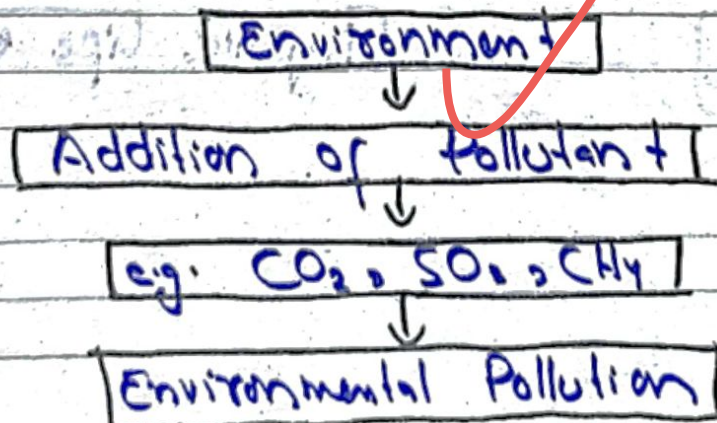 Environment
Addition of Pollutant
e.g. CO₂, SO₂, CH₄
Environmental Pollution